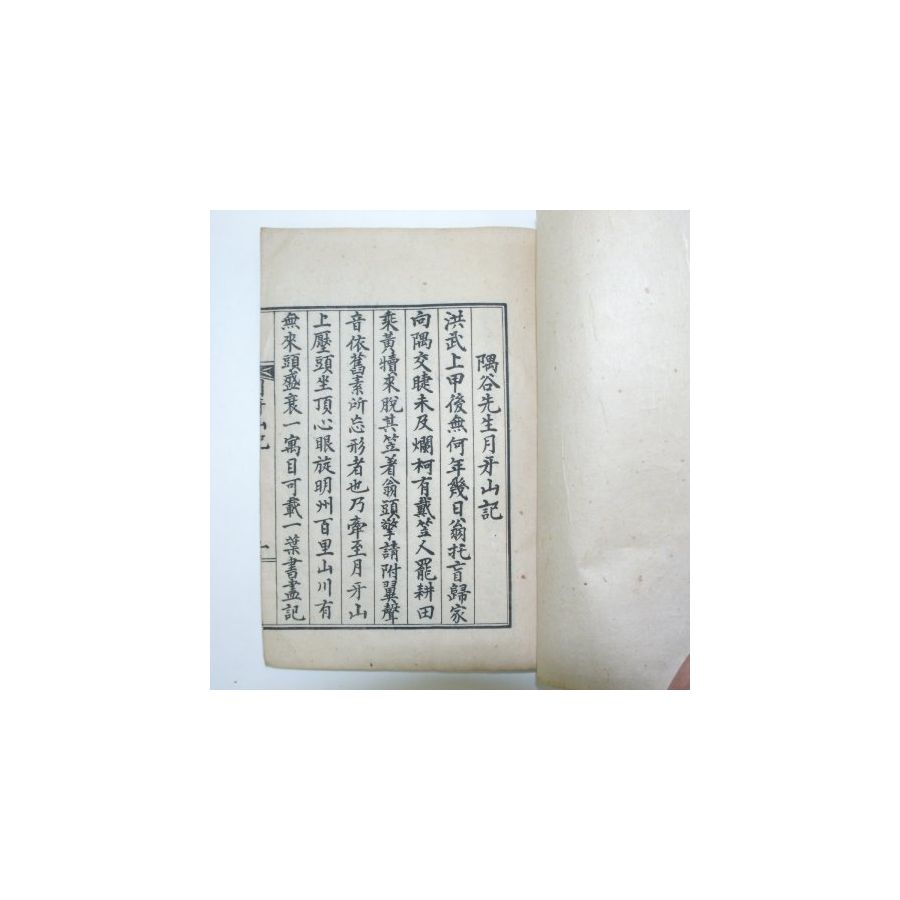 隅谷先生月牙山記
洪武上甲後無何年幾日翁托盲歸家
向隅交睫未及爛柯有戴笠人罷耕田
乘黃犢來脫其笠著翁頭擎請附翼聲
音依舊素所忘形者也乃牽至月牙山
上壓頭坐頂心眼旋明州百里山川有
無來頭盛衰一寓目可載一葉書盡記